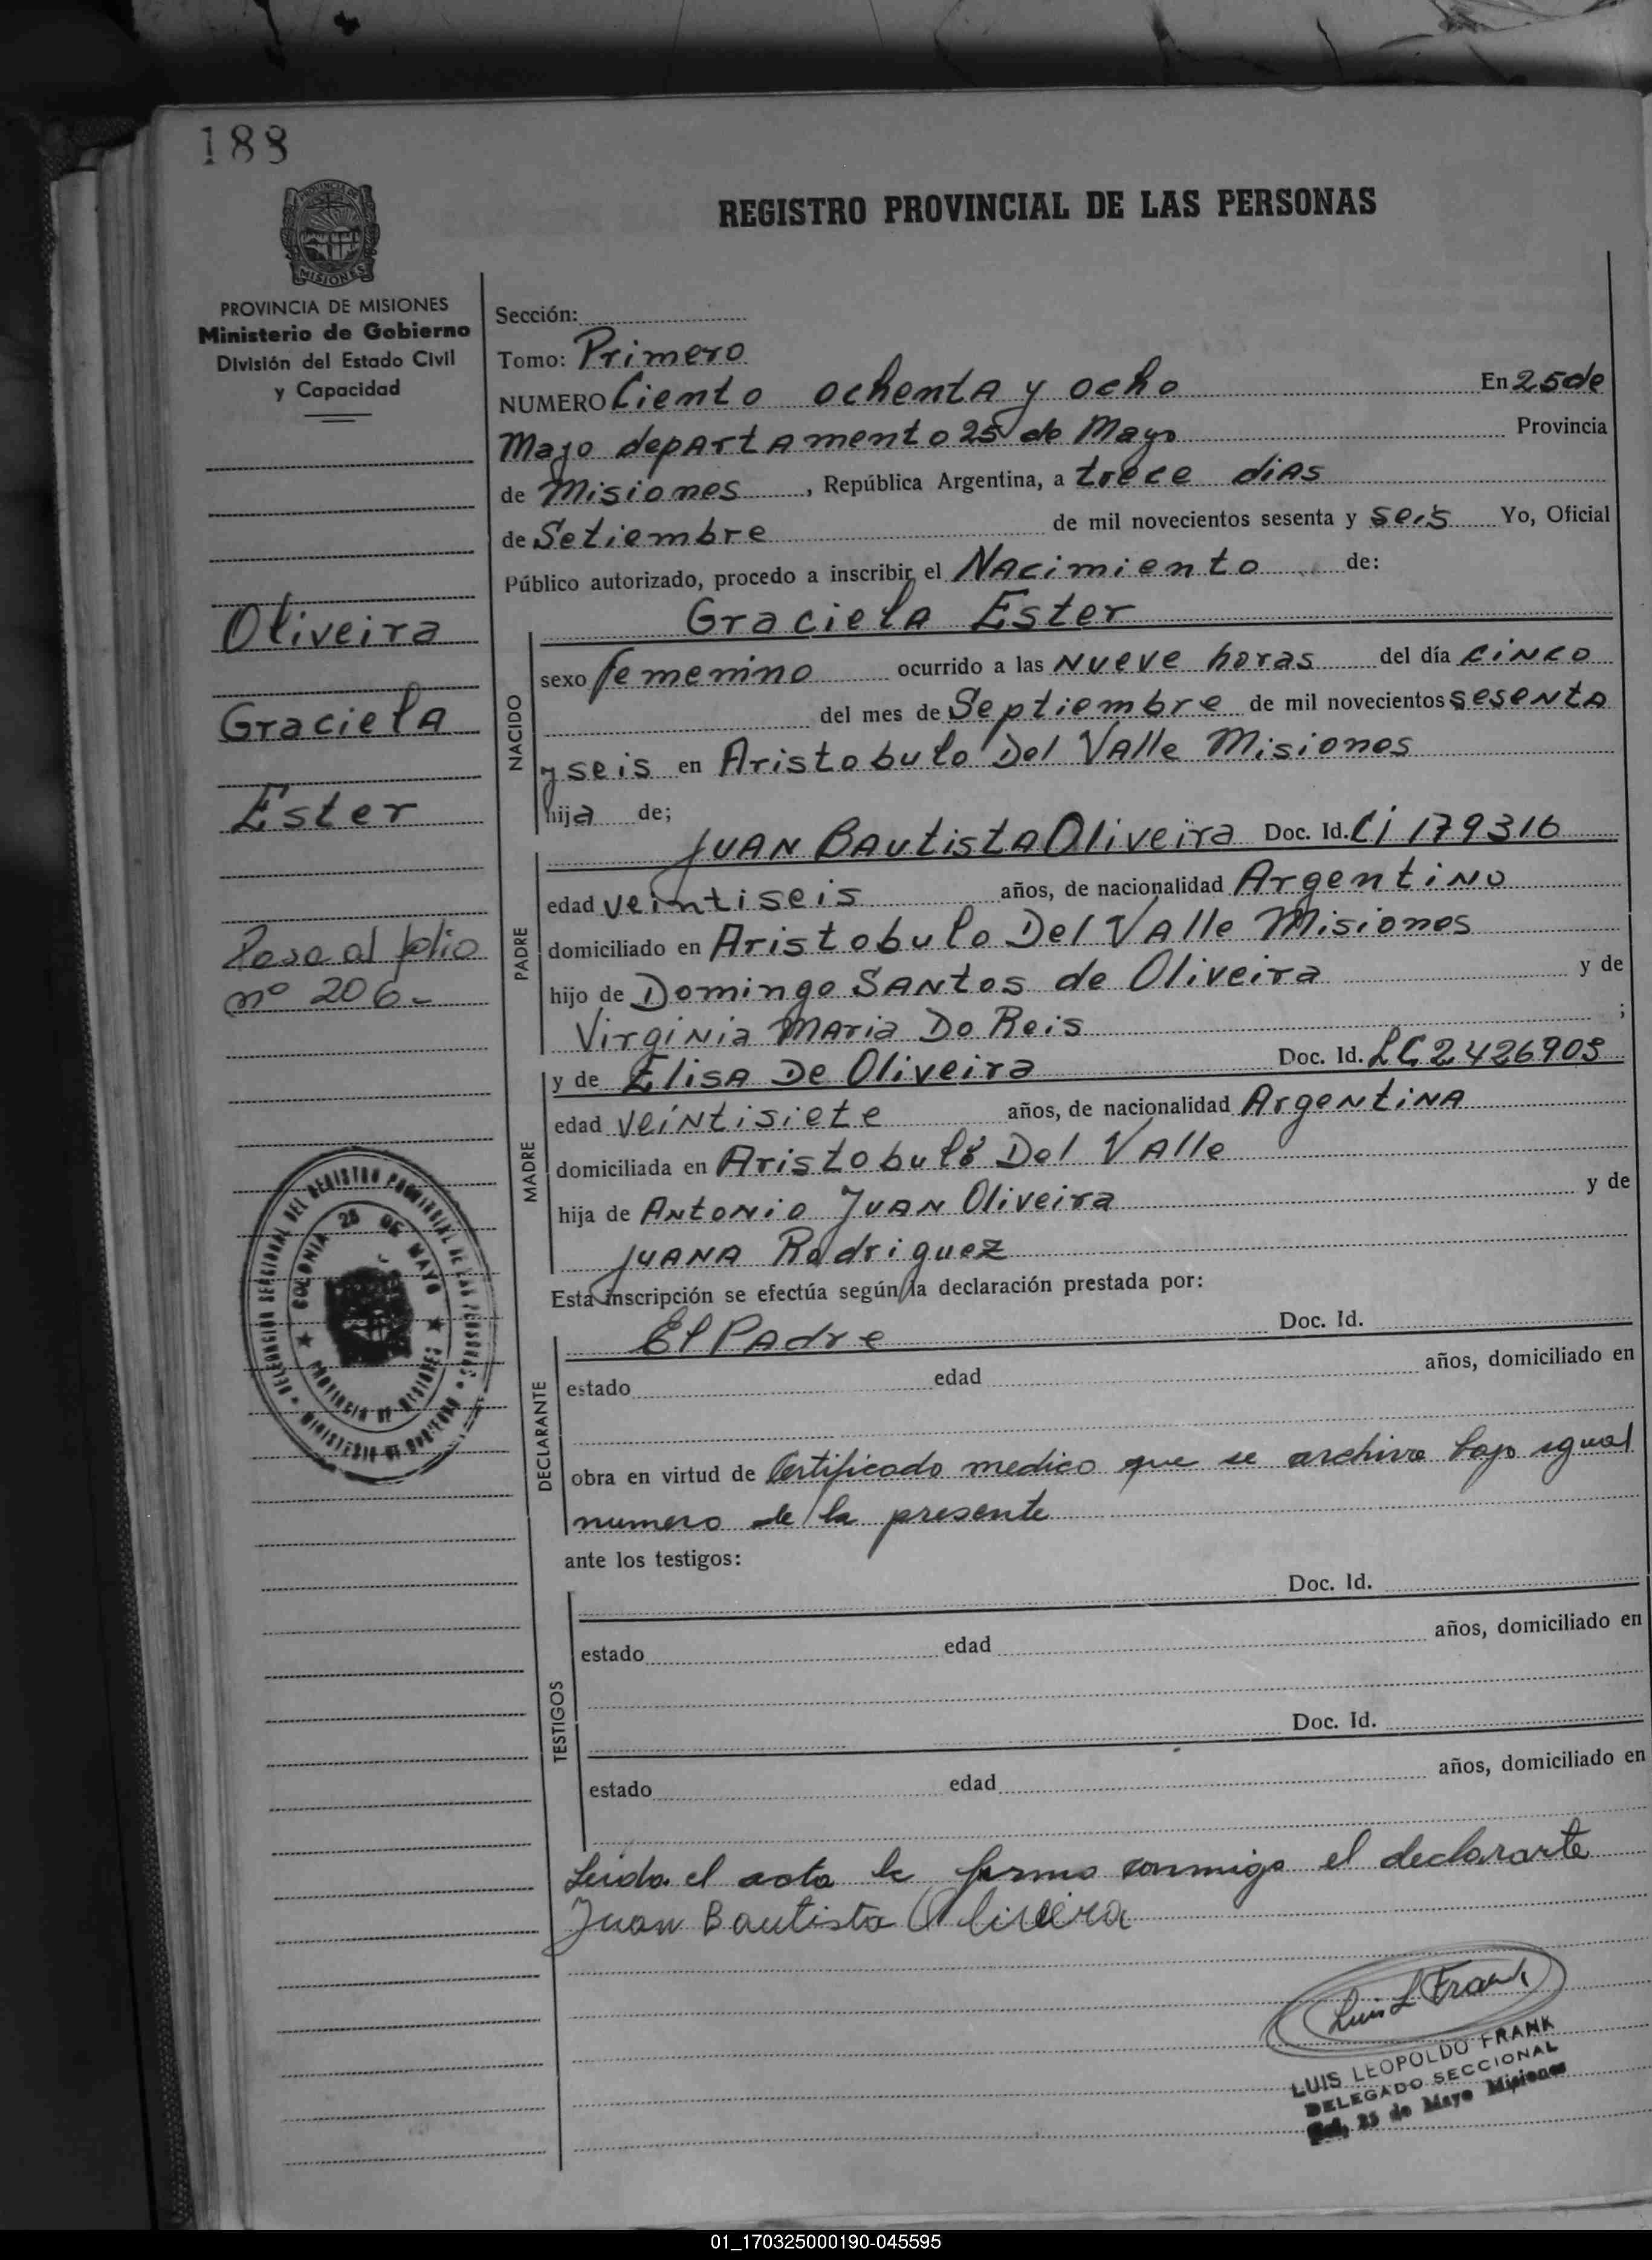 188
PROVINCIA DE
MISIONES
PROVINCIA DE MISIONES
Ministerio de Gobierno
División del Estado Civil
y Capacidad
Oliveira
Graciela
Ester
Pasa al folio
nº 206-
DELEGACION SECCIONAL DEL REGISTRO PROVINCIAL DE LAS PERSONAS
MINISTERIO DE GOBIERNO
COLONIA 25 DE MAYO
PROVINCIA DE MISIONES
REGISTRO PROVINCIAL DE LAS PERSONAS
Sección:
Tomo: Primero
NUMERO Ciento ochenta y ocho En 25 de
Mayo departamento 25 de Mayo Provincia
de Misiones, República Argentina, a trece dias
de Setiembre de mil novecientos sesenta y seis Yo, Oficial
Público autorizado, procedo a inscribir el Nacimiento de:
Graciela Ester
NACIDO
sexo femenino ocurrido a las nueve horas del día cinco
del mes de Septiembre de mil novecientos sesenta
y seis en Aristobulo Del Valle Misiones
hija de;
Juan Bautista Oliveira Doc. Id. Ci 179316
PADRE
edad veintiseis años, de nacionalidad Argentino
domiciliado en Aristobulo Del Valle Misiones
hijo de Domingo Santos de Oliveira y de
Virginia Maria Do Reis ;
y de Elisa De Oliveira Doc. Id. LC 2426905
MADRE
edad veintisiete años, de nacionalidad Argentina
domiciliada en Aristobulo Del Valle
hija de Antonio Juan Oliveira y de
Juana Rodriguez
Esta inscripción se efectúa según la declaración prestada por:
El Padre Doc. Id.
DECLARANTE
estado edad años, domiciliado en
obra en virtud de Certificado medico que se archiva bajo igual
numero de la presente
ante los testigos:
Doc. Id.
TESTIGOS
estado edad años, domiciliado en
Doc. Id.
estado edad años, domiciliado en
Leida el acta la firma conmigo el declarante
Juan Bautista Oliveira
Luis L Frank
LUIS LEOPOLDO FRANK
DELEGADO SECCIONAL
Col. 25 de Mayo Misiones
01_170325000190-045595